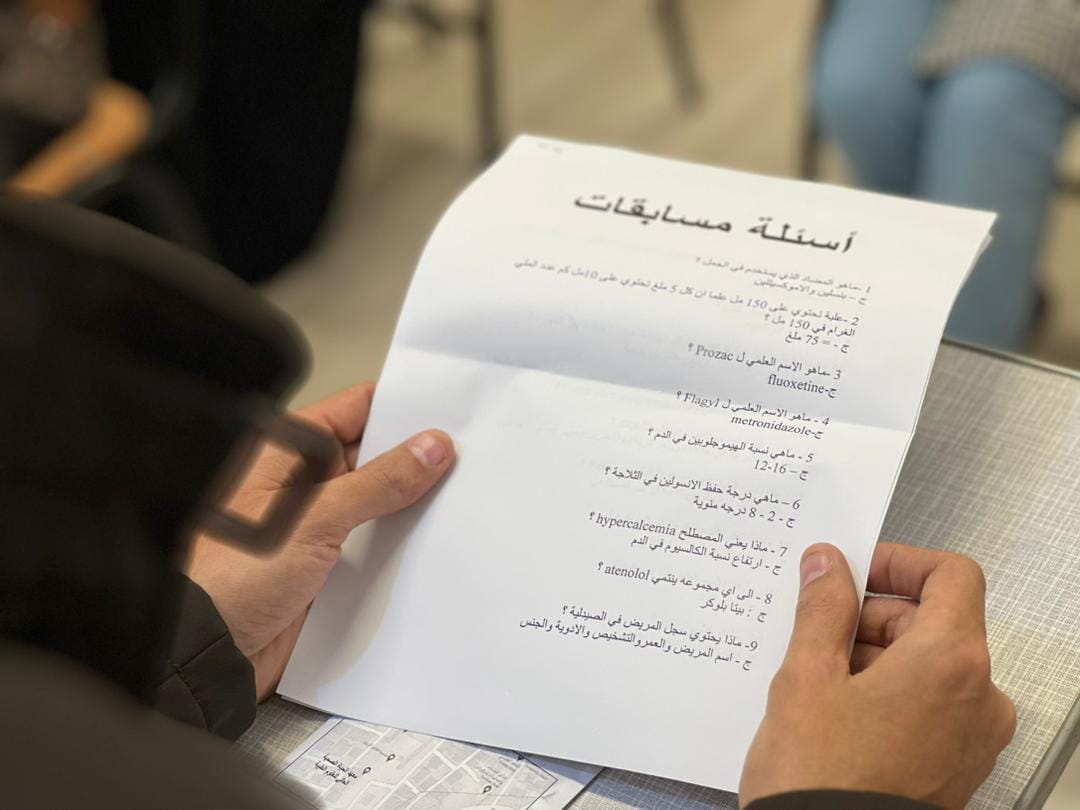 أسئلة مسابقات
1 -ماهو المضاد الذي يستخدم في الحمل ؟
ج – بنسلين والاموكسيسلين
2 -علبة تحتوي على 150 مل علما ان كل 5 ملغ تحتوي على 10مل كم عدد الملي
الغرام في 150 مل ؟
ج - = 75 ملغ
3 -ماهو الاسم العلمي ل Prozac ؟
ج-fluoxetine
4 - ماهو الاسم العلمي ل Flagyl ؟
ج-metronidazole
5 - ماهي نسبة الهيموجلوبين في الدم ؟
ج – 16-12
6 – ماهي درجة حفظ الانسولين في الثلاجة ؟
ج - 2 - 8 درجه مئوية
7 - ماذا يعني المصطلح hypercalcemia ؟
ج - ارتفاع نسبة الكالسيوم في الدم
8 - الى اي مجموعه ينتمي atenolol ؟
ج : بيتا بلوكر
9- ماذا يحتوي سجل المريض في الصيدلية ؟
ج - اسم المريض والعمروالتشخيص والادوية والجنس